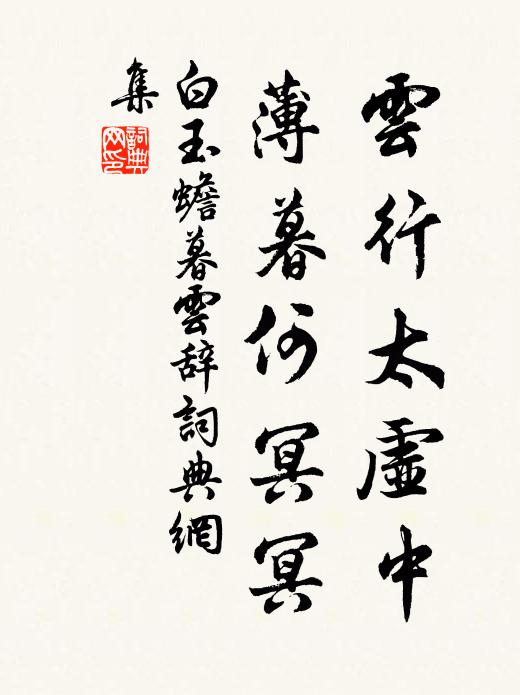 雲行太虛中
薄暮何冥冥
白玉蟾暮雲辞詞典網
集
詞典网印